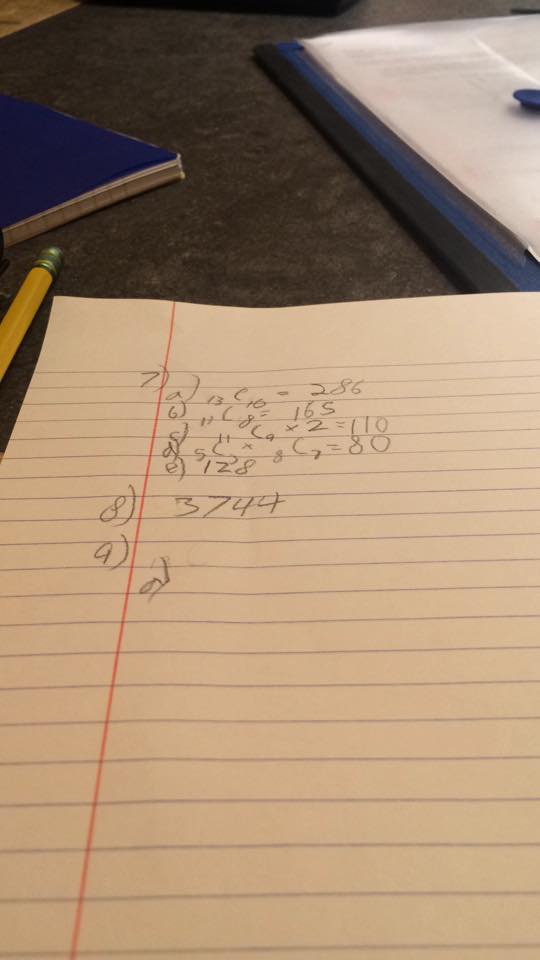 7)
a) ₁₃C₁₀ = 286
b) ₁₁C₈ = 165
c) ₁₁C₉ × 2 = 110
d) ₅C₃ × ₈C₇ = 80
e) 128
8) 3744
9)
a)